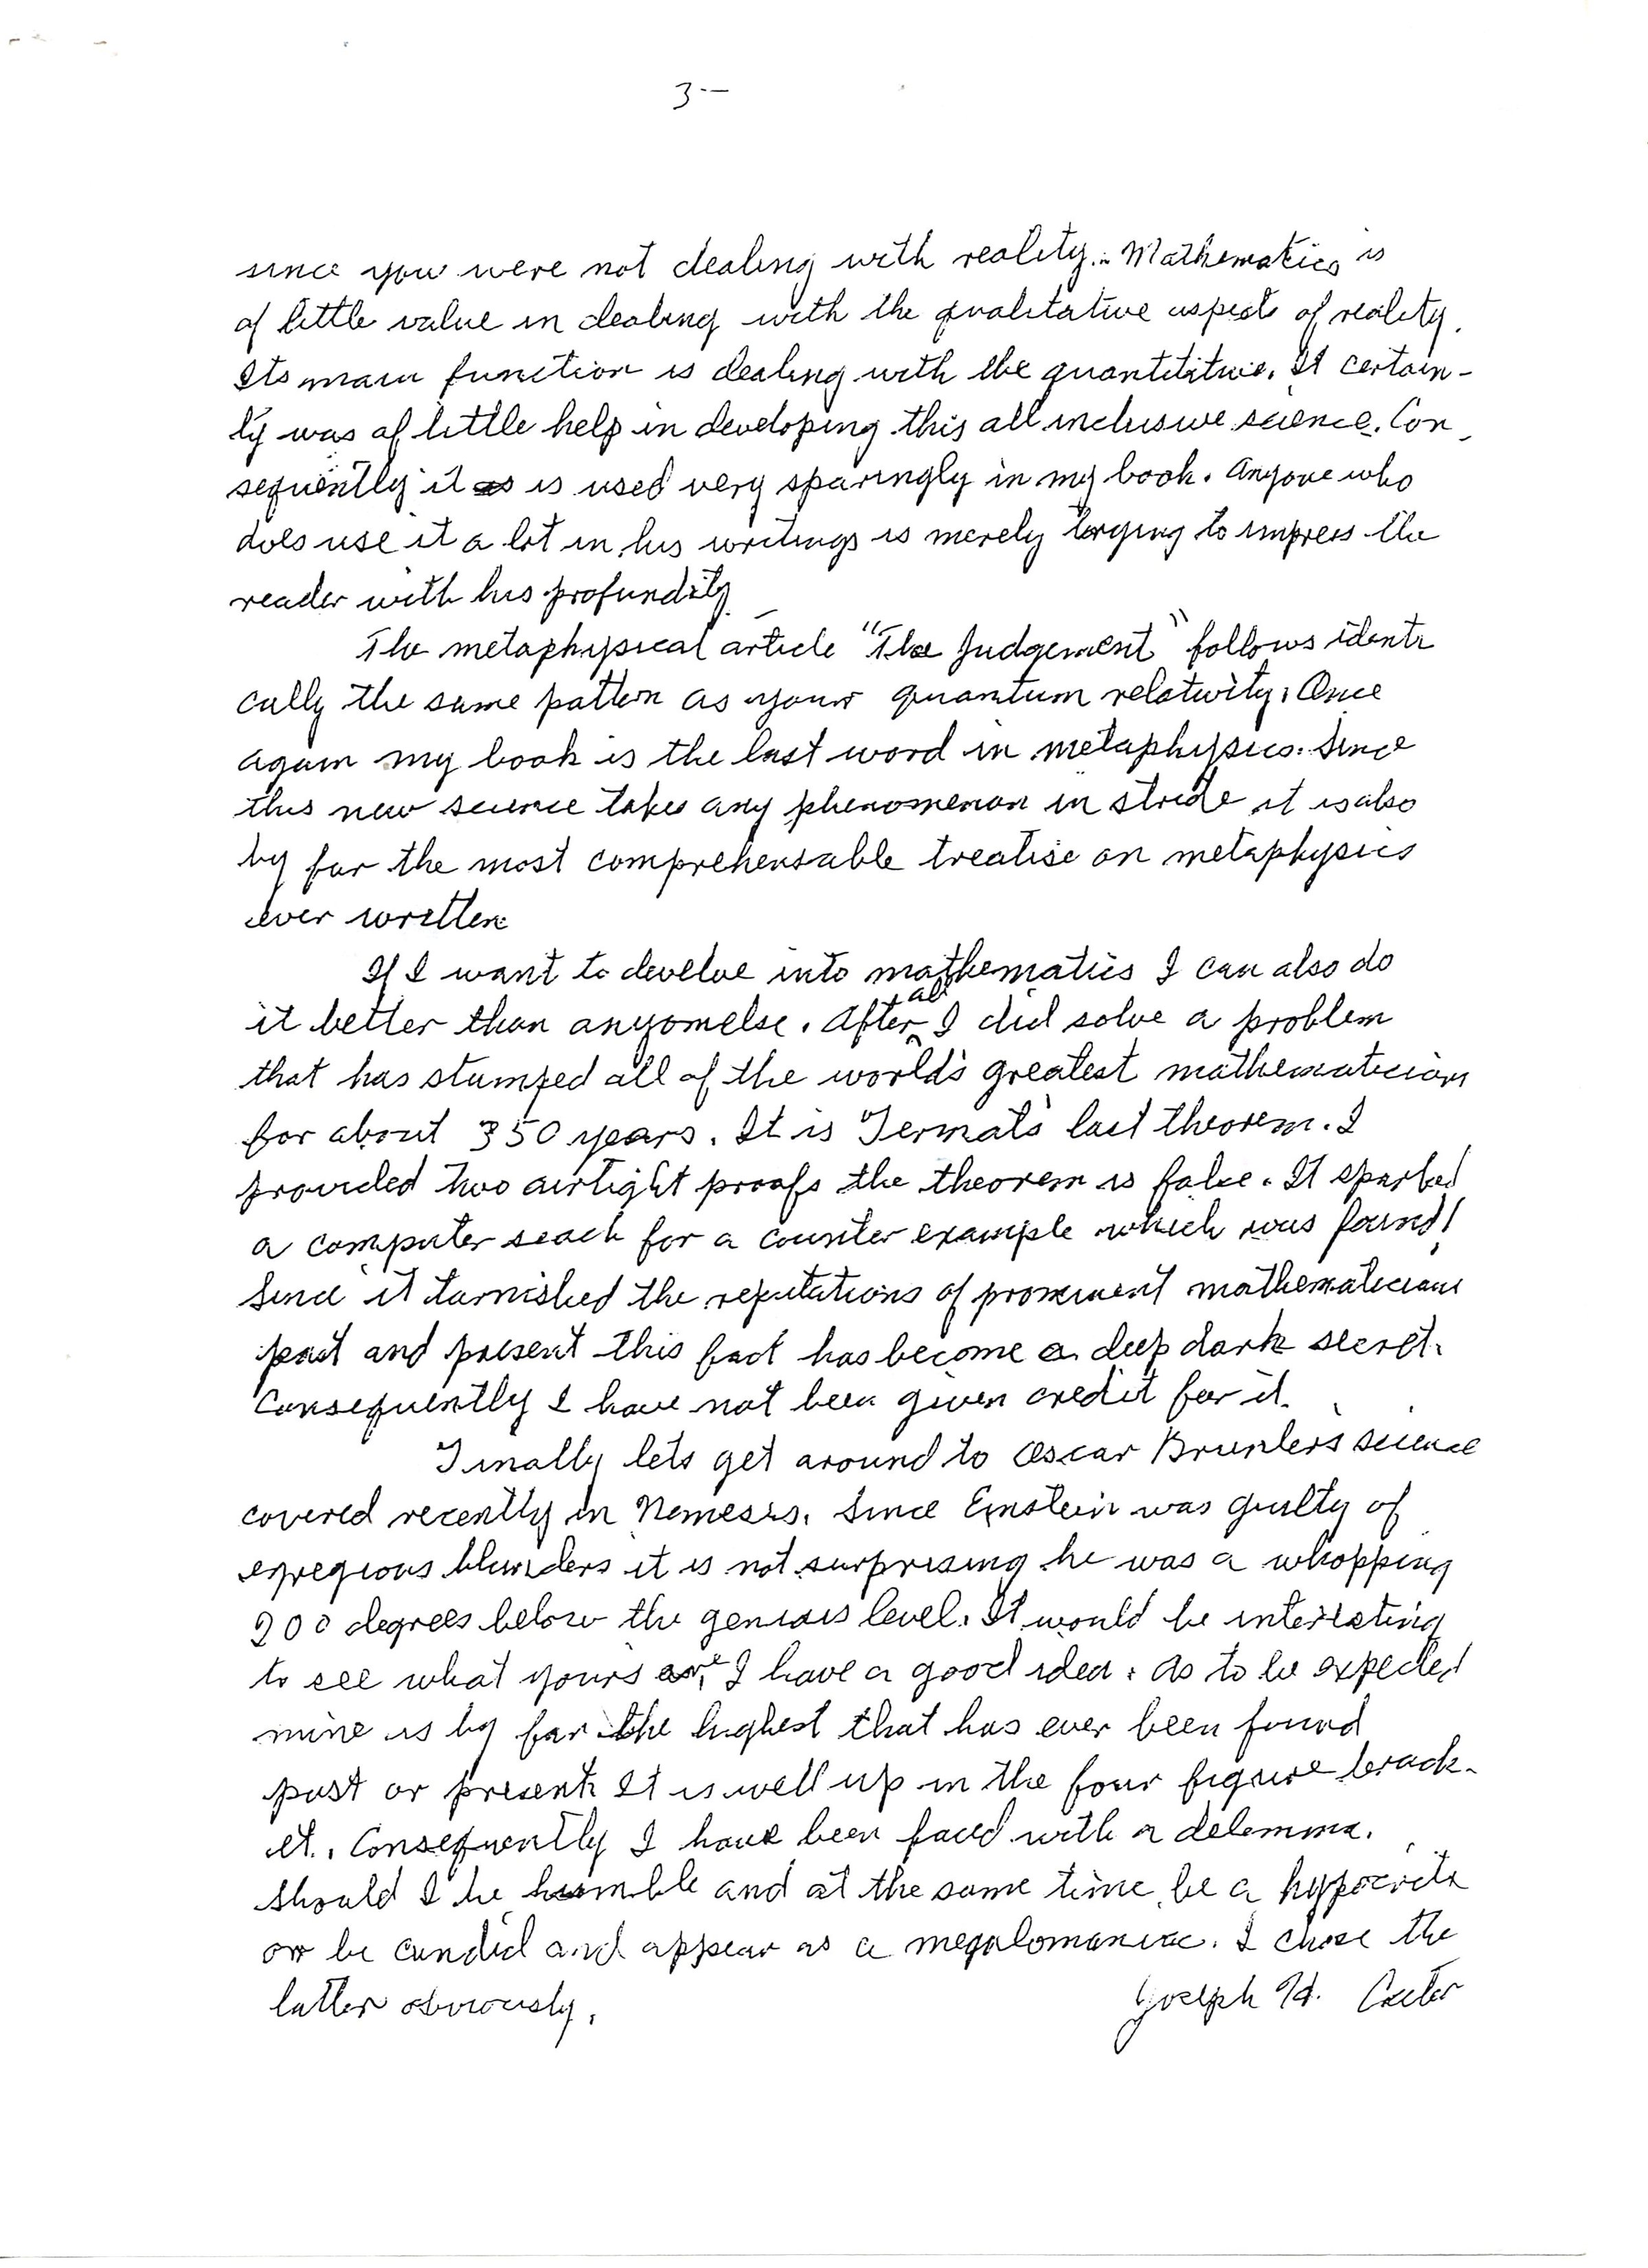 3--
since you were not dealing with reality. Mathematics is
of little value in dealing with the qualitative aspects of reality.
Its main function is dealing with the quantitative. It certain-
ly was of little help in developing this all inclusive science. Con-
sequently it is used very sparingly in my book. Anyone who
does use it a lot in his writings is merely trying to impress the
reader with his profundity.
The metaphysical article "The Judgement" follows identi
cally the same pattern as your quantum relativity. Once
again my book is the last word in metaphysics. Since
this new science takes any phenomenon in stride it is also
by far the most comprehensable treatise on metaphysics
ever written.
If I want to develve into mathematics I can also do
it better than anyomelse. After all I did solve a problem
that has stumped all of the world's greatest mathematicians
for about 350 years. It is Fermat's last theorem. I
provided two airtight proofs the theorem is false. It sparked
a computer seach for a counter example which was found!
Since it turnished the reputations of prominent mathematicians
past and present this fact has become a deep dark secret.
Consequently I have not been given credit for it.
Finally lets get around to Oscar Brunlers science
covered recently in Nemesis. Since Einstein was guilty of
egregious blunders it is not surprising he was a whopping
200 degrees below the genius level. It would be interesting
to see what yours are, I have a good idea. As to be expected
mine is by far the highest that has ever been found
past or present. It is well up in the four figure brack-
et. Consequently I have been faced with a delemma.
Should I be humble and at the same time be a hypocrite
or be candid and appear as a megalomaniac. I chose the
latter obviously.
Joseph H. Cater